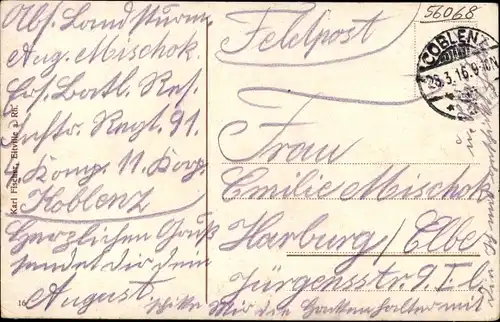 Abs. Landsturm
Aug. Mischok.
Ers. Batl. Res.
Inftr. Regt. 91.
Komp. 11. Korp.
Koblenz
Herzlichen Gruß
sendet dir dein
August.
schike Mir die Hosenhalter mit
Feldpost
56068
COBLENZ
28.3.16.9-10N
Frau
Emilie Mischok
Harburg/Elbe
Jürgensstr. 9. I. l.
Karl Fischer, Eltville a. Rh.
16